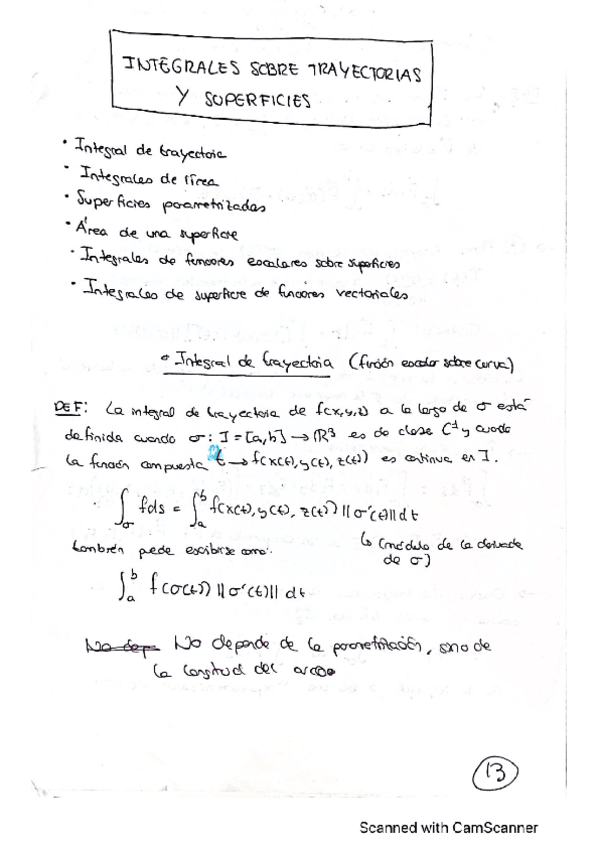 INTEGRALES SOBRE TRAYECTORIAS
Y SUPERFICIES
• Integral de trayectoria
• Integrales de línea
• Superficies parametrizadas
• Área de una superficie
• Integrales de funciones escalares sobre superficies
• Integrales de superficie de funciones vectoriales
• Integral de trayectoria (función escalar sobre curva)
DEF: La integral de trayectoria de f(x,y,z) a lo largo de σ está
definida cuando σ: I = [a,b] → ℝ³ es de clase C¹ y cuando
la función compuesta t → f(x(t), y(t), z(t)) es continua en I.
∫_σ f ds = ∫_a^b f(x(t), y(t), z(t)) ||σ'(t)|| dt
también puede escribirse como:
↳ (módulo de la derivada
de σ)
∫_a^b f(σ(t)) ||σ'(t)|| dt
No dep. No depende de la parametrización, sino de
la longitud del arco
13
Scanned with CamScanner